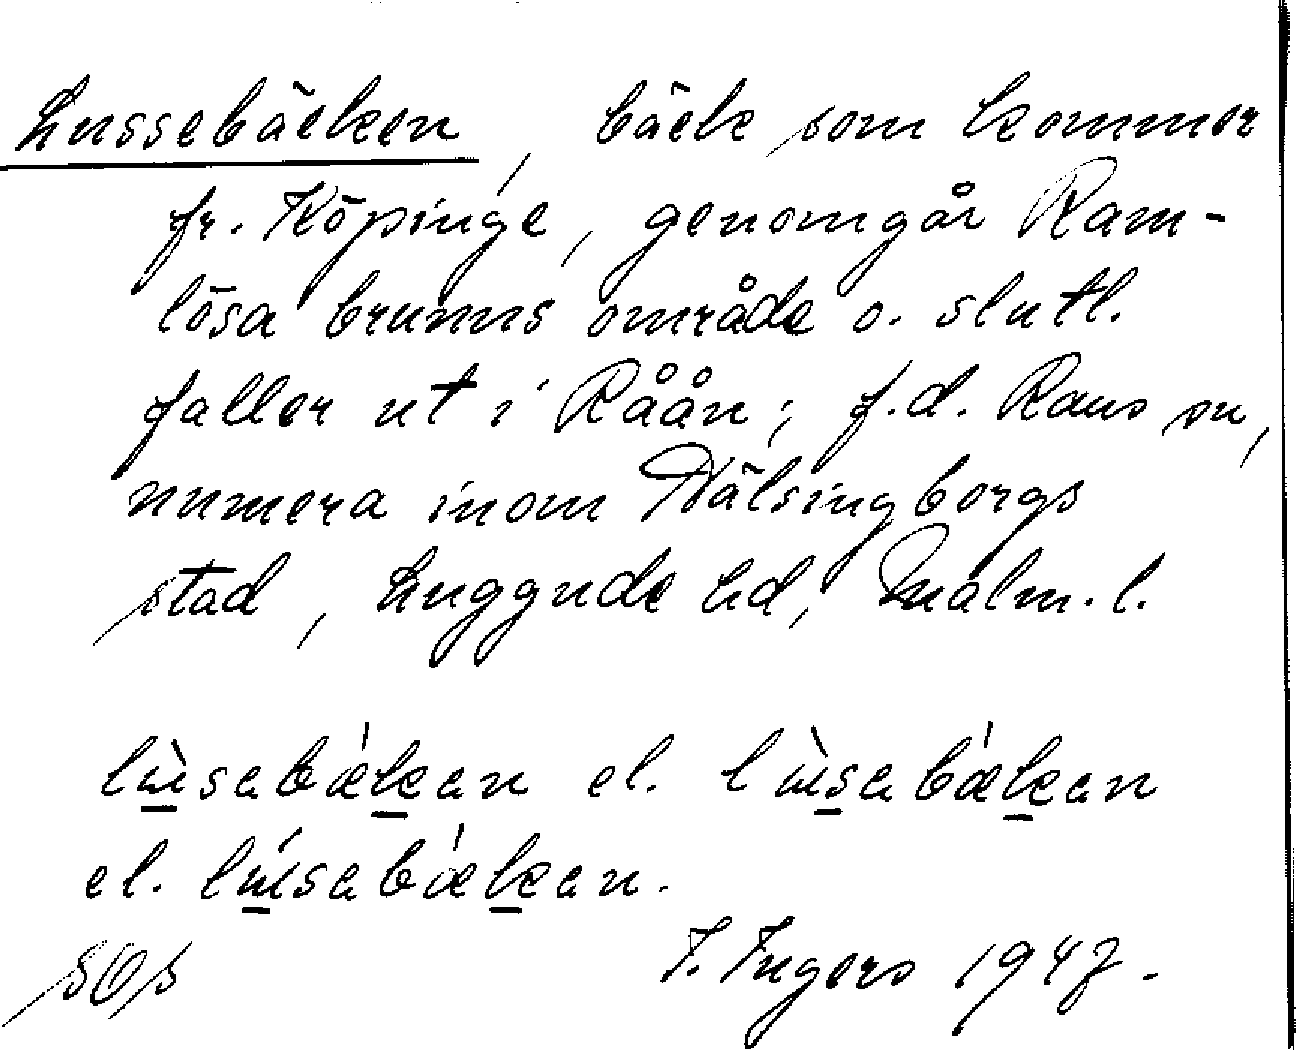 Lussebäcken, bäck som kommer
fr. Köpinge, genomgår Ram-
lösa brunns område o. slutl.
faller ut i Råån; f.d. Raus sn,
numera inom Hälsingborgs
stad, Luggude hd, Malm. l.
el.
el.
I. Ingers 1947.